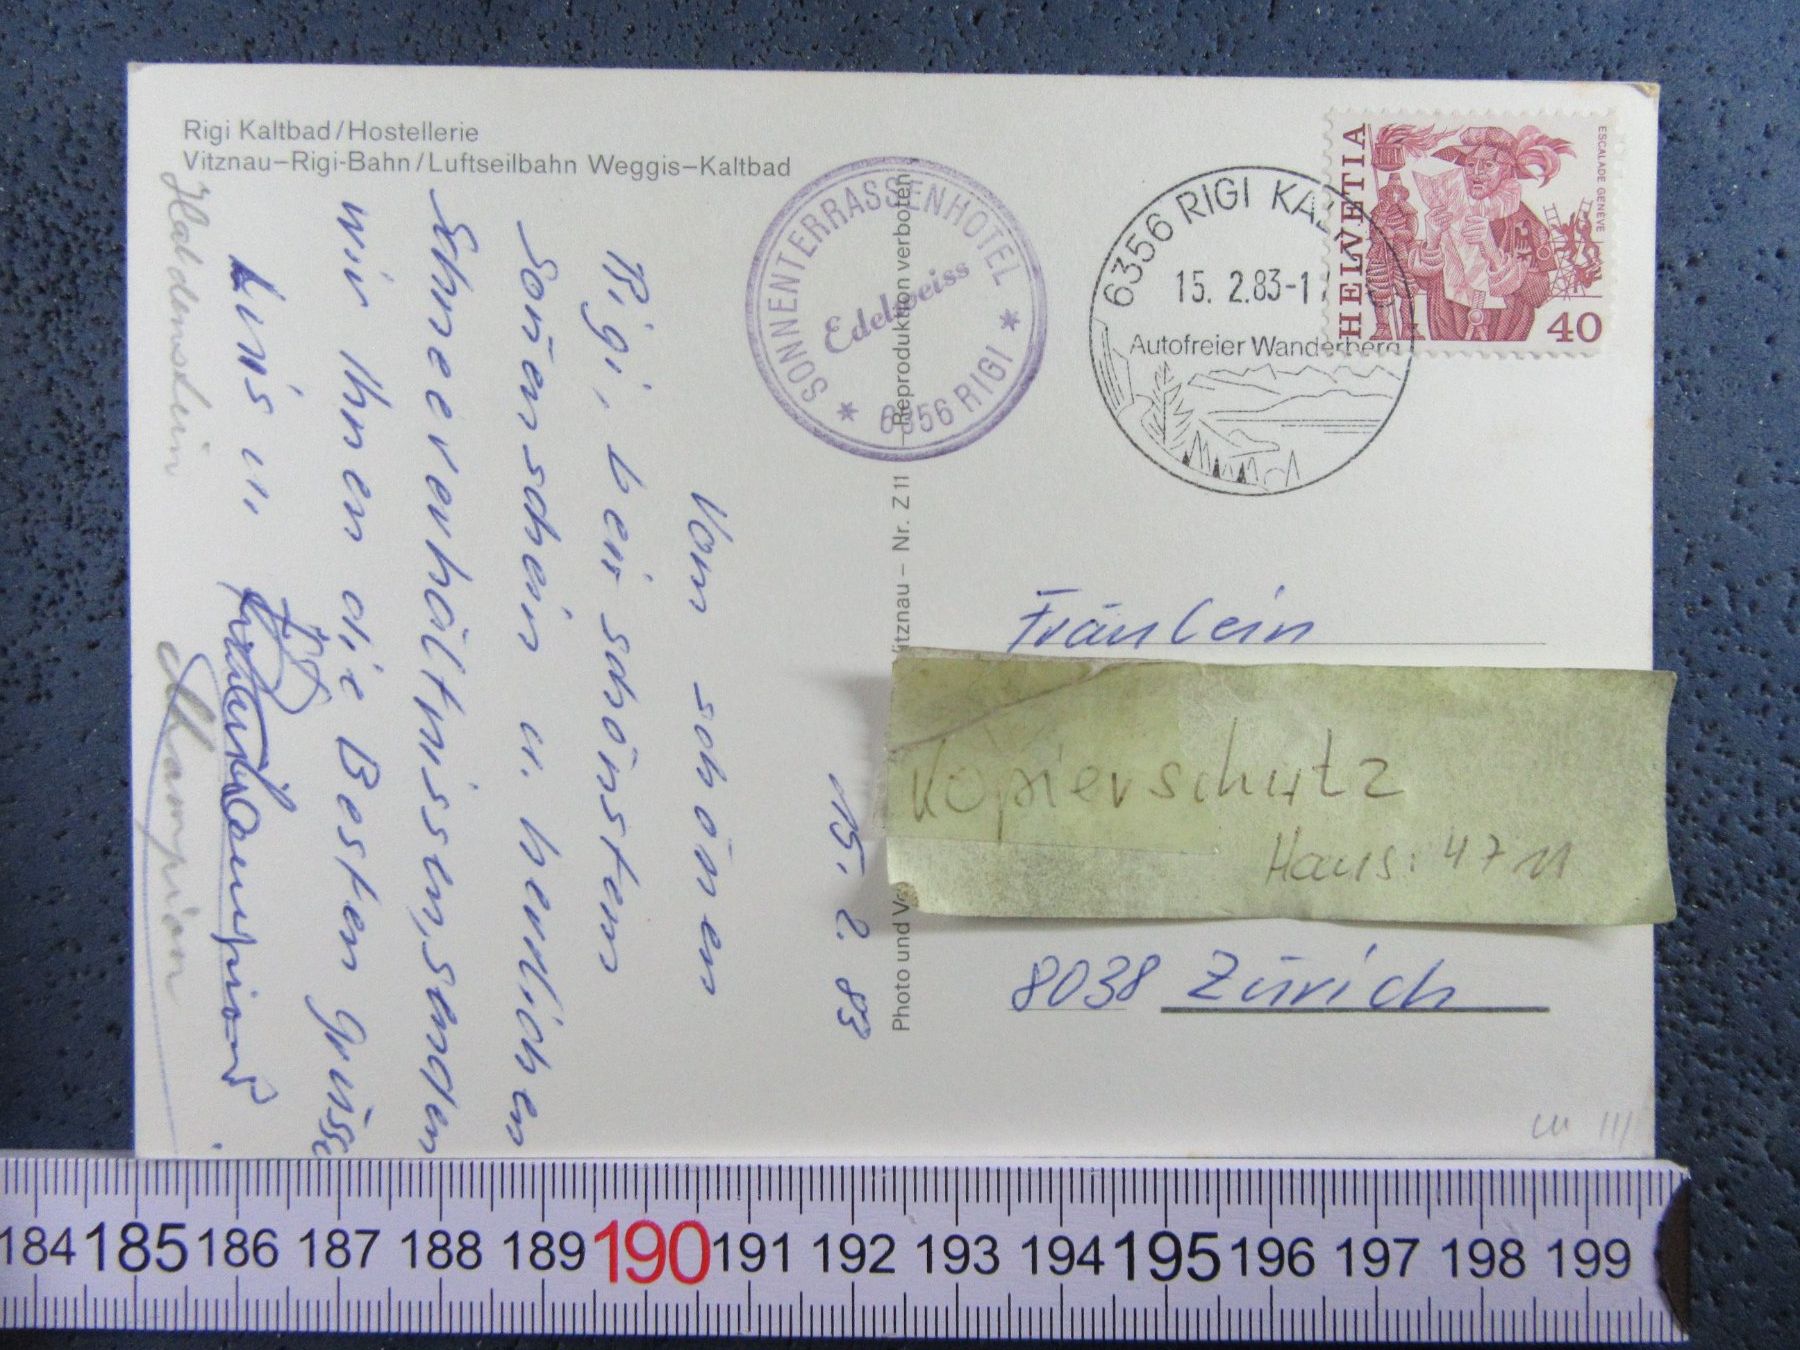 Rigi Kaltbad/Hostellerie
Vitznau–Rigi-Bahn/Luftseilbahn Weggis–Kaltbad
SONNENTERRASSENHOTEL
Edelweiss
* 6356 RIGI *
6356 RIGI KAL
15. 2.83-1
Autofreier Wanderberg
HELVETIA
ESCALADE GENEVE
40
15. 2. 83
Vom schönen
Rigi, bei schönstem
Soñenschein u. herlichen
Schneeverhältnissen, senden
wir Ihnen die Besten Grüsse
Champion
Photo und V
itznau – Nr. Z 11
Reproduktion verboten
Fräulein
Kopierschutz
Haus: 4711
8038 Zürich
184 185 186 187 188 189 190 191 192 193 194 195 196 197 198 199